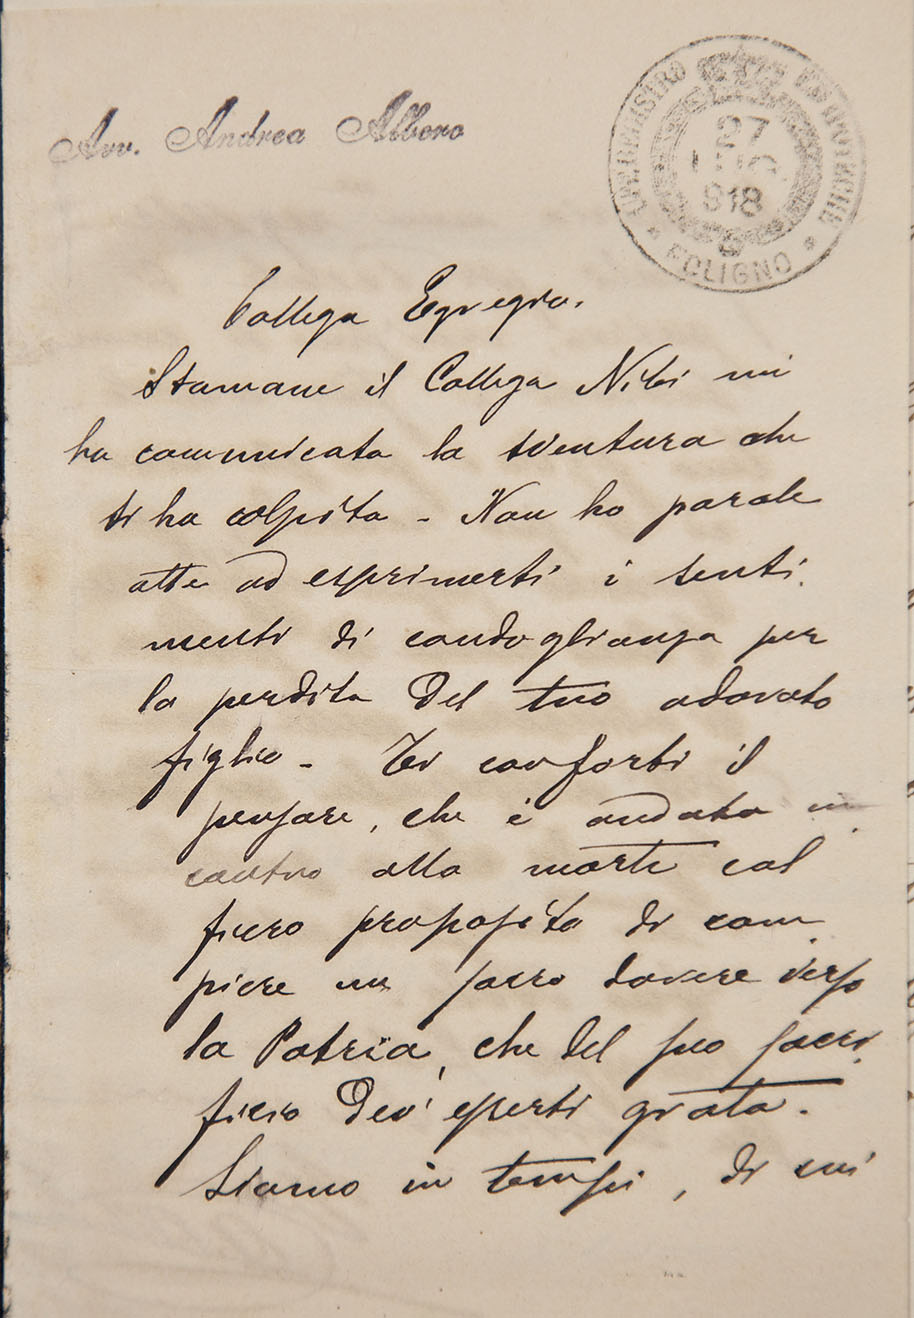 Avv. Andrea Albero
UFF. REGISTRO
FOLIGNO
27
LUG
918
Collega Egregio.
Stamane il Collega Nibi mi
ha comunicata la sventura che
ti ha colpito - Non ho parole
atte ad esprimerti i senti
menti di condoglianza per
la perdita del tuo adorato
figlio - Ti conforti il
pensare, che è andato in
contro alla morte col
fiero proposito di com
piere un sacro dovere verso
la Patria, che del suo sacri
ficio dev' esserti grata.
Siamo in tempi, di cui